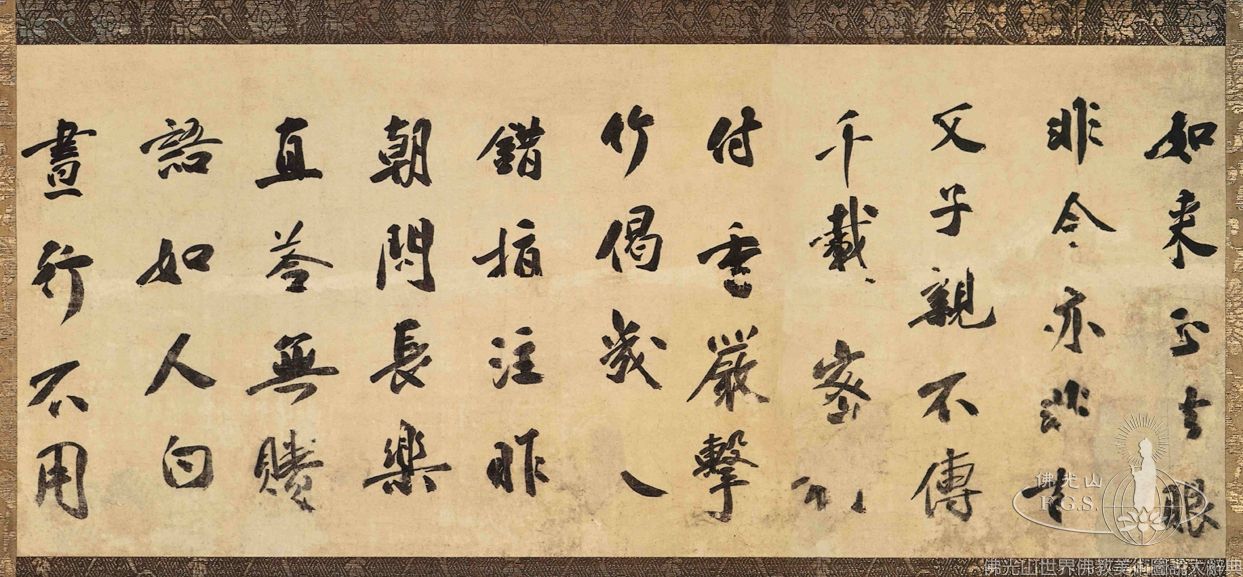 如来正法眼
非今亦非古
父子親不傳
千載密相
付香嚴擊
竹偈幾人
錯指注昨
朝問長樂
直荅無賸
語如人白
晝行不用
佛光山
F.G.S.
佛光山世界佛教美術圖說大辭典